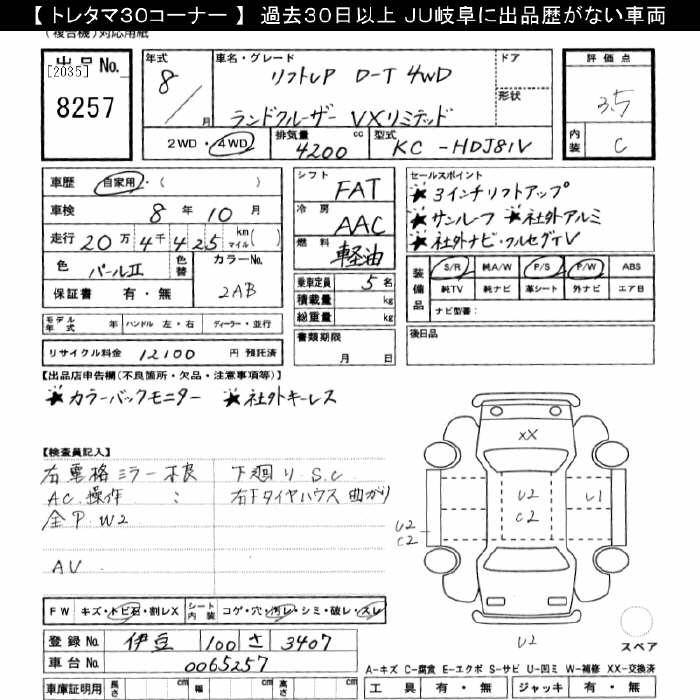 【 トレタマ30コーナー 】 過去30日以上 JU岐阜に出品歴がない車両
(複合機)対応用紙
出品 No. [2035] 8257
年式 8 / 月
車名・グレード リフトUP D-T 4WD
ランドクルーザー VXリミテッド
ドア
形状
2WD・4WD 排気量 4200 cc 型式 KC-HDJ81V
評価点 3.5
内装 C
車歴 自家用・( )
車検 8 年 10 月
走行 20 万 4 千 4 2 5 km マイル( )
色 パールII 色替 カラーNo. 2AB
保証書 有・無
モデル年式 年 ハンドル 左・右 ディーラー・並行
リサイクル料金 12100 円 預託済
シフト FAT
冷房 AAC
燃料 軽油
乗車定員 5 名
積載量 kg
総重量 kg
書類期限 月 日
セールスポイント
★ 3インチリフトアップ
★ サンルーフ ★ 社外アルミ
★ 社外ナビ・フルセグTV
装備品 S/R 純A/W P/S P/W ABS
純TV 純ナビ 革シート 外ナビ エア日
ナビ型番:
後日品
【出品店申告欄(不良箇所・欠品・注意事項等)】
★ カラーバックモニター ★ 社外キーレス
【検査員記入】
右電格ミラー不良 下廻り S.C
AC.操作 〃 右Fタイヤハウス曲がり
全P W2
AU
XX
U2
C2
U1
U2
C2
U2
スペア
FW キズ・トビ石・割レX シート内装 コゲ・穴・汚レ・シミ・破レ・スレ
登録 No. 伊豆 100 さ 3407
車台 No. 0065257
車庫証明用 長さ cm 幅 cm 高さ cm
A-キズ C-腐食 E-エクボ S-サビ U-凹ミ W-補修 XX-交換済
工具 有・無 ジャッキ 有・無